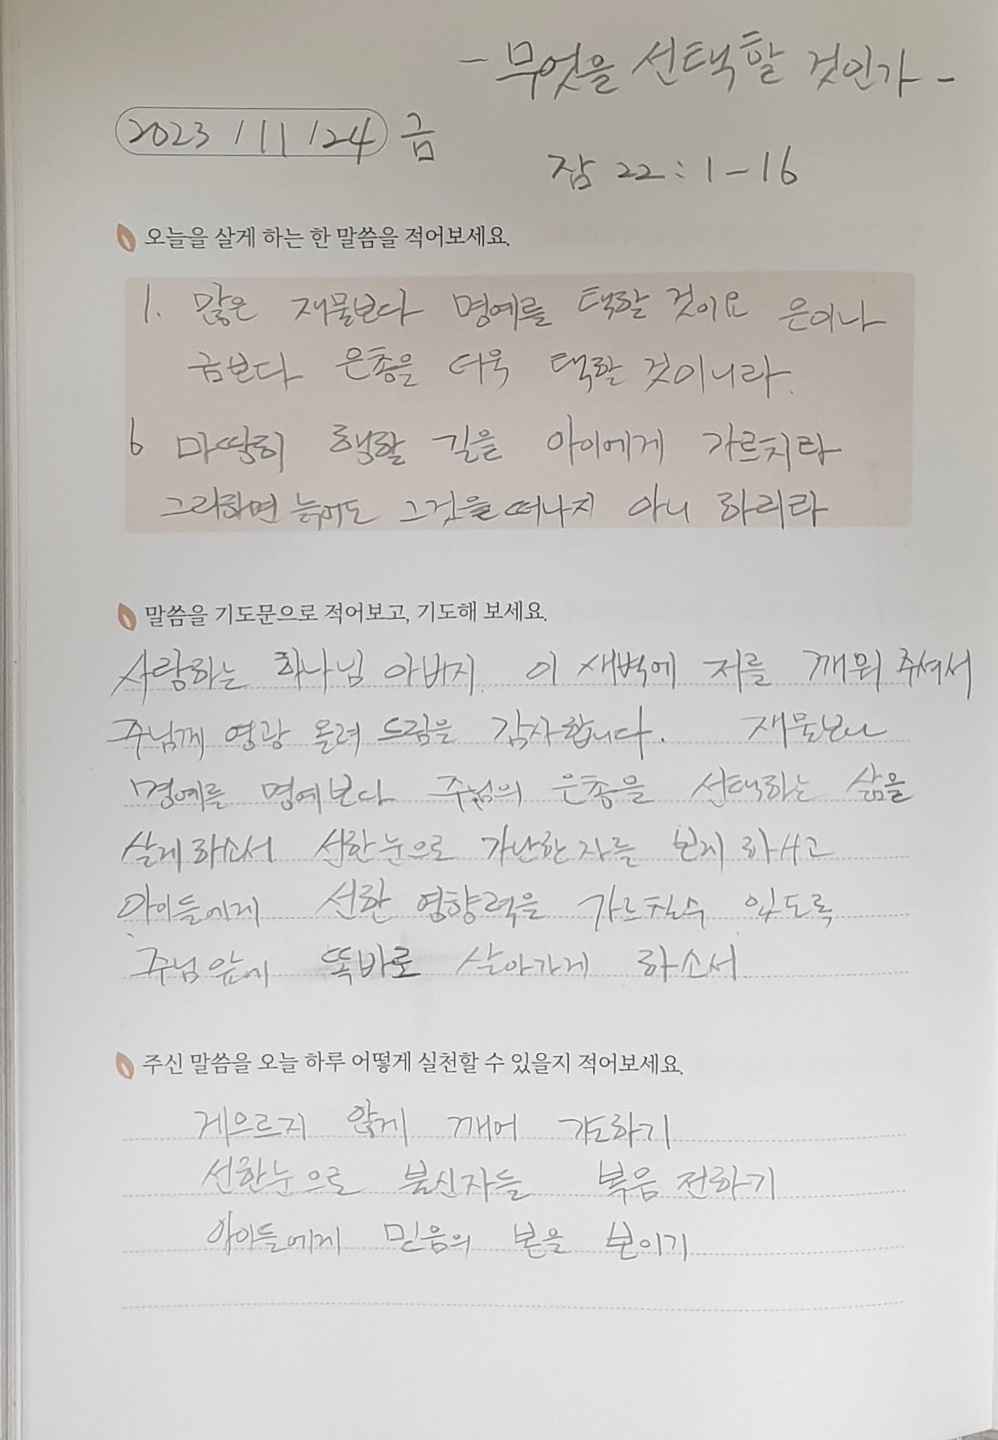 - 무엇을 선택할 것인가 -
2023 / 11 / 24 금
잠 22 : 1 - 16
오늘을 살게 하는 한 말씀을 적어보세요.
1. 많은 재물보다 명예를 택할 것이요 은이나
금보다 은총을 더욱 택할 것이니라.
6 마땅히 행할 길을 아이에게 가르치라
그리하면 늙어도 그것을 떠나지 아니 하리라
말씀을 기도문으로 적어보고, 기도해 보세요.
사랑하는 하나님 아버지 이 새벽에 저를 깨워 주셔서
주님께 영광 올려 드림을 감사합니다. 재물보다
명예를 명예보다 주님의 은총을 선택하는 삶을
살게 하소서 선한눈으로 가난한 자를 보게 하시고
아이들에게 선한 영향력을 가르칠수 있도록
주님 앞에 똑바로 살아가게 하소서.
주신 말씀을 오늘 하루 어떻게 실천할 수 있을지 적어보세요.
게으르지 않게 깨어 기도하기
선한눈으로 불신자들 복음 전하기
아이들에게 믿음의 본을 보이기